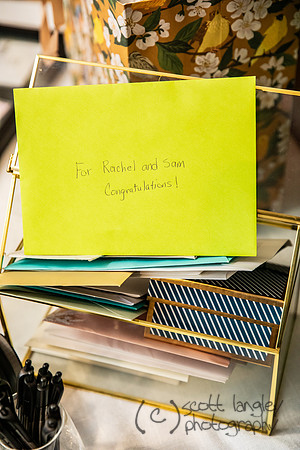 For Rachel and Sam
Congratulations!
(c) scott langley
photography